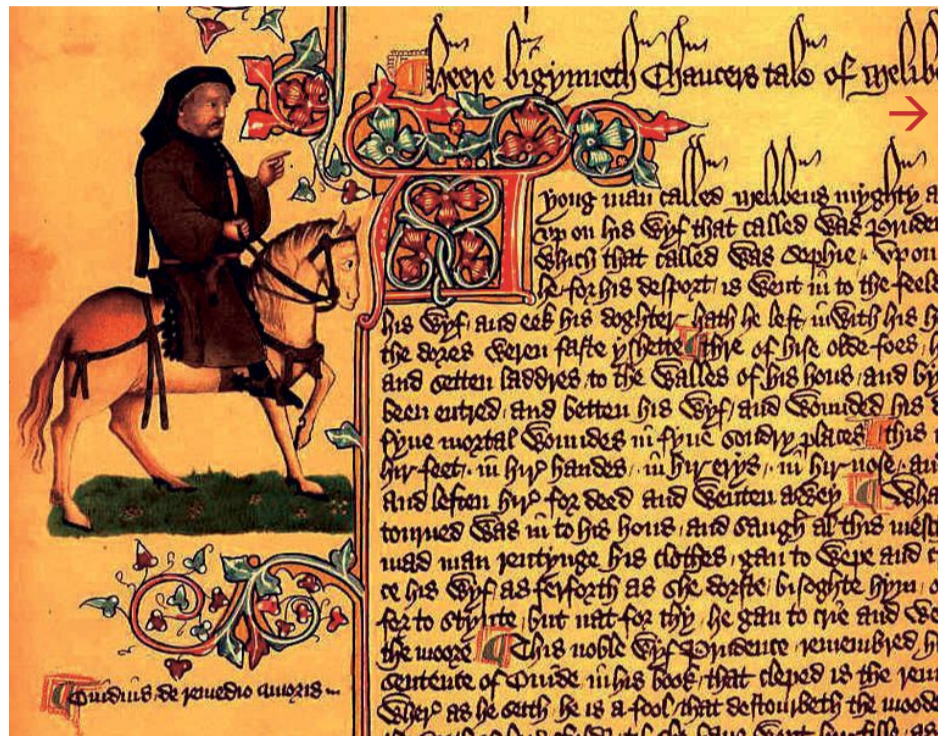 Heere bigynneth Chaucers tale of Melibe
→
yong man called Melibeus myghty a
vp on his wyf that called was Pruden
which that called was Sophie / Vpon
he for his desport is went in to the feeld
his wyf / and eek his doghter / hath he left inwith his h
the dores weren faste yshette thre of hise olde foes / h
and setten laddres to the walles of his hous / and by
been entred / and betten his wyf / and wounded his
fyue mortal woundes in fyue sondry places this
hir feet / in hir handes / in hir erys / in hir nose / an
and leften hir for deed and wenten awey Wha
tourned was in to his hous / and saugh al this mesc
mad man rentynge his clothes / gan to wepe and c
ce his wyf / as ferforth as she dorste / bisoghte hym / o
for to stynte / but nat for thy / he gan to crie and we
the moore This noble wyf Prudence / remembred h
sentence of Ouide in his book / that cleped is the rem
Wher as he seith he is a fool / that destourbeth the mooder
Ouidius de remedio amoris